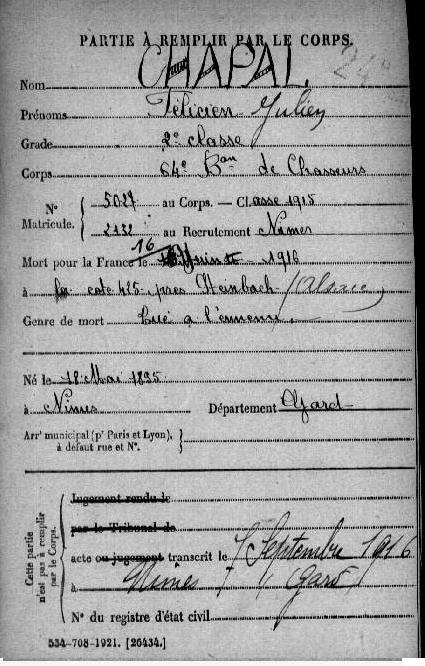 PARTIE À REMPLIR PAR LE CORPS.
Nom CHAPAL.
Prénoms Félicien Julien
Grade 2e classe
Corps 64e Bon de Chasseurs
N° Matricule. { 5027 au Corps. — Classe 1915
2132 au Recrutement Nimes
Mort pour la France le 16 Juin 1916
à la cote 425 près Steinbach (Alsace)
Genre de mort Tué à l'ennemi.
Né le 18 Mai 1895
à Nimes Département Gard
Arrt municipal (pr Paris et Lyon), à défaut rue et N°. }
Cette partie n'est pas à remplir par le Corps. {
Jugement rendu le
par le Tribunal de
acte ou jugement transcrit le 7 Septembre 1916
à Nimes (Gard)
N° du registre d'état civil
534-708-1921. [26434.]